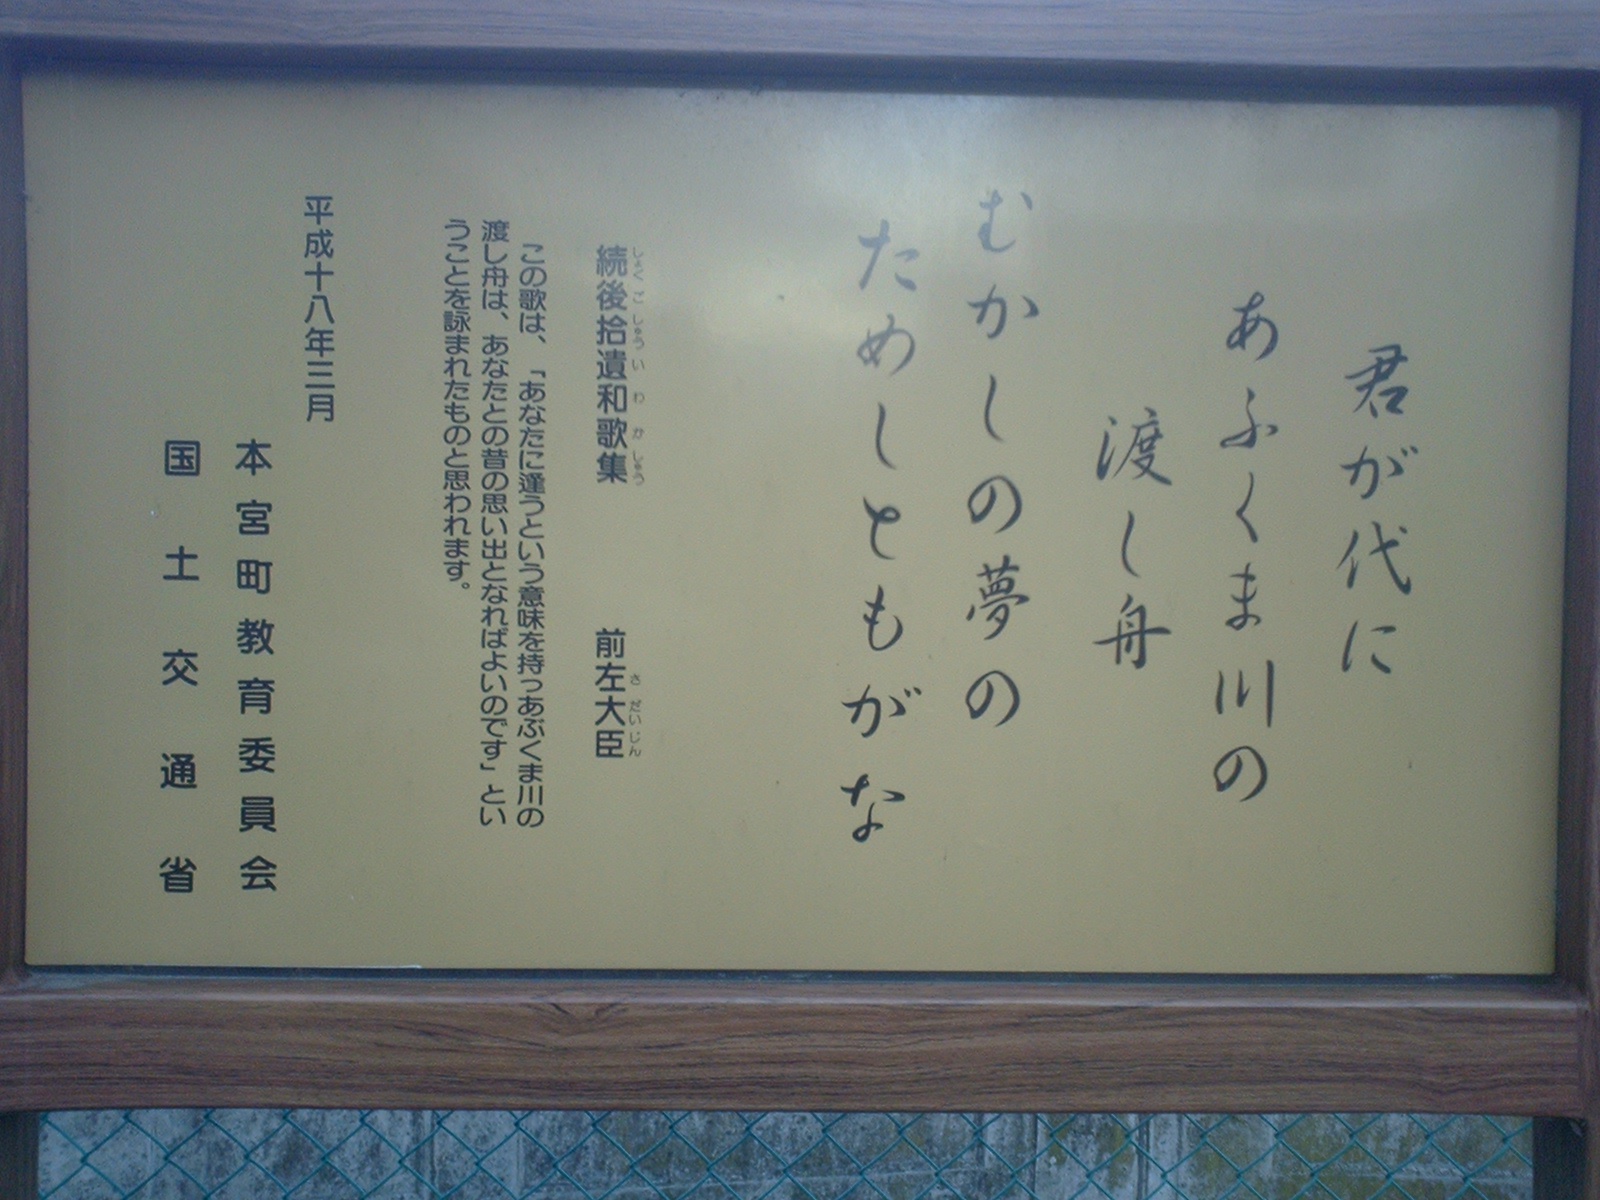 君が代に
あふくま川の
渡し舟
むかしの夢の
ためしともがな
続後拾遺和歌集 前左大臣
しょくごしゅういわかしゅう さだいじん
この歌は、「あなたに逢うという意味を持つあぶくま川の
渡し舟は、あなたとの昔の思い出となればよいのです」とい
うことを詠まれたものと思われます。
平成十八年三月
本宮町教育委員会
国土交通省